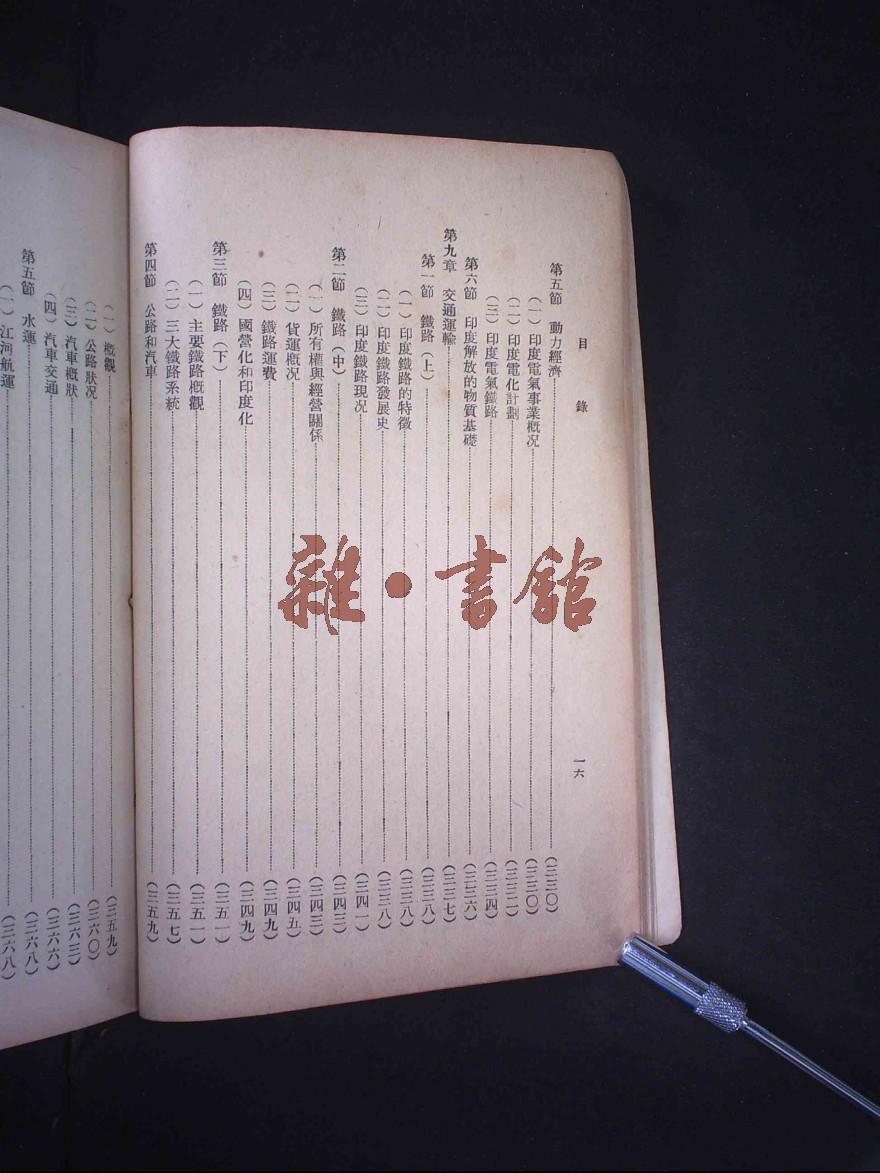 目 錄
一六
第五節 動力經濟 (三三〇)
(一) 印度電氣事業概況 (三三〇)
(二) 印度電化計劃 (三三二)
(三) 印度電氣鐵路 (三三四)
第六節 印度解放的物質基礎 (三三六)
第九章 交通運輸 (三三七)
第一節 鐵路(上) (三三八)
(一) 印度鐵路的特徵 (三三八)
(二) 印度鐵路發展史 (三三八)
(三) 印度鐵路現況 (三四一)
第二節 鐵路(中) (三四三)
(一) 所有權與經營關係 (三四三)
(二) 貨運概況 (三四五)
(三) 鐵路運費 (三四九)
(四) 國營化和印度化 (三四九)
第三節 鐵路(下) (三五一)
(一) 主要鐵路概觀 (三五一)
(二) 三大鐵路系統 (三五七)
第四節 公路和汽車 (三五九)
(一) 概觀 (三五九)
(二) 公路狀況 (三六〇)
(三) 汽車概狀 (三六三)
(四) 汽車交通 (三六六)
第五節 水運 (三六八)
(一) 江河航運 (三六八)
雜·書館